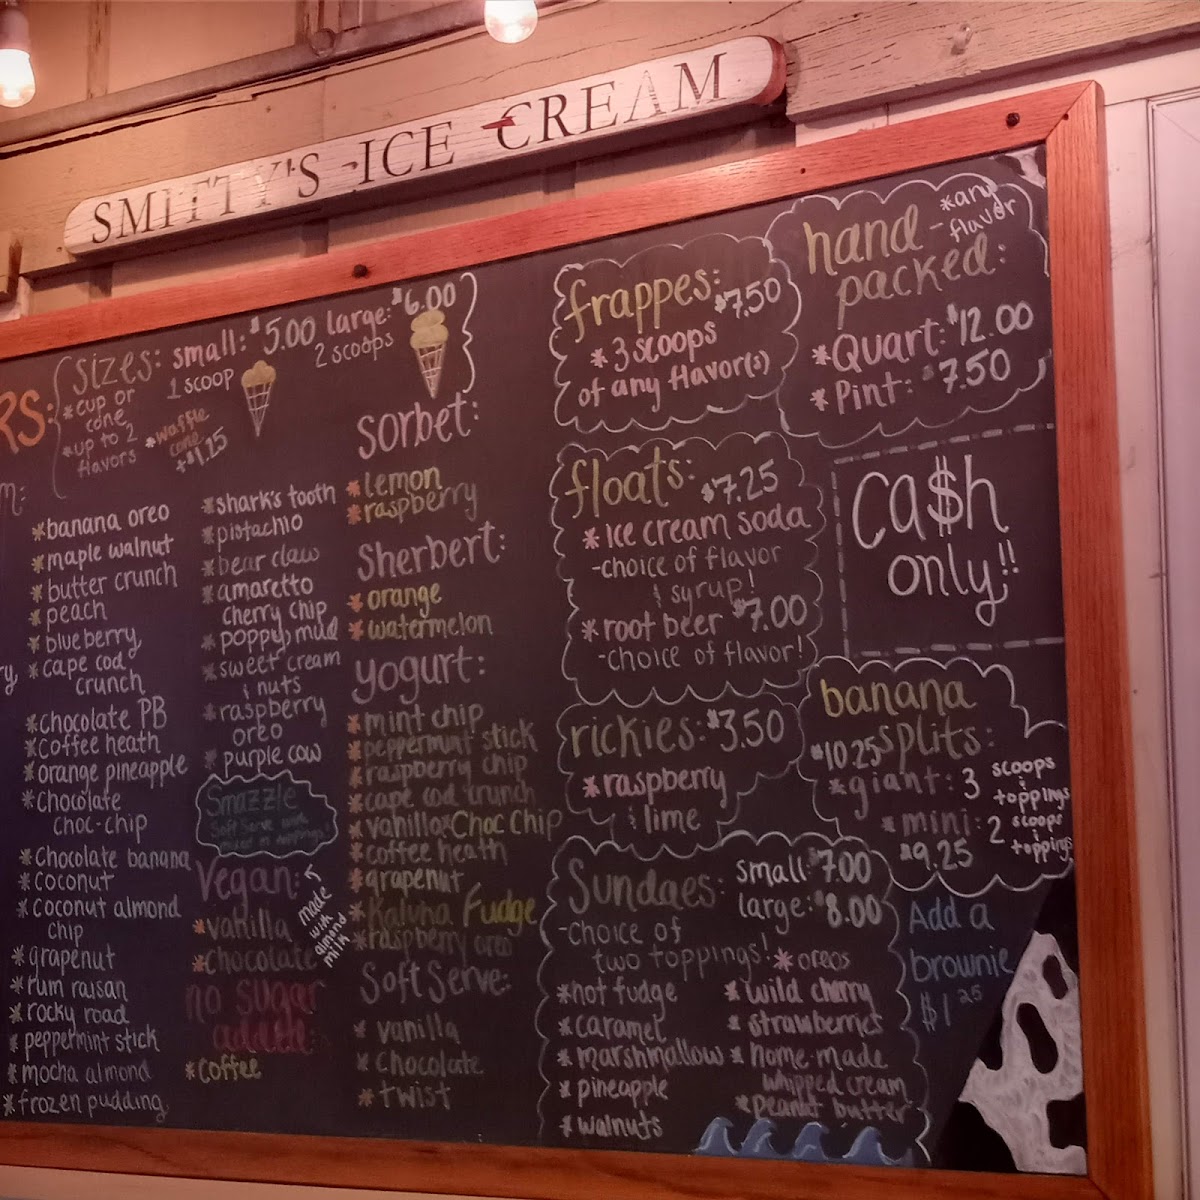 SMITTY'S ICE CREAM
RS:
sizes:
*cup or
cone
*up to 2
flavors
small: $5.00
1 scoop
*waffle
cone
+$1.25
large: $6.00
2 scoops
m:
*banana oreo
*maple walnut
*butter crunch
*peach
*blueberry
*cape cod
crunch
*chocolate PB
*coffee heath
*orange pineapple
*chocolate
choc-chip
*chocolate banana
*coconut
*coconut almond
chip
*grapenut
*rum raisan
*rocky road
*peppermint stick
*mocha almond
*frozen pudding
*shark's tooth
*pistachio
*bear claw
*amaretto
cherry chip
*poppy's mud
*sweet cream
& nuts
*raspberry
oreo
*purple cow
Smazzle
Soft Serve with
mixed in toppings!
Vegan:
made
with
almond
milk
*vanilla
*chocolate
no sugar
added:
*coffee
Sorbet:
*lemon
*raspberry
Sherbert:
*orange
*watermelon
yogurt:
*mint chip
*peppermint stick
*raspberry chip
*cape cod crunch
*vanilla choc chip
*coffee heath
*grapenut
*Kaluha Fudge
*raspberry oreo
Soft Serve:
*vanilla
*chocolate
*twist
frappes:
$7.50
*3 scoops
of any flavor(s)
hand
packed:
*any
flavor
*Quart: $12.00
*Pint: $7.50
floats:
$7.25
*ice cream soda
-choice of flavor
& syrup!
*root beer $7.00
-choice of flavor!
ca$h
only!!
rickies: $3.50
*raspberry
& lime
banana
splits:
$10.25
*giant: 3 scoops
& toppings
*mini: 2 scoops
& toppings
$9.25
Sundaes:
small: $7.00
large: $8.00
-choice of
two toppings!
*hot fudge
*caramel
*marshmallow
*pineapple
*walnuts
*oreos
*wild cherry
*strawberries
*home-made
whipped cream
*peanut butter
Add a
brownie
$1.25